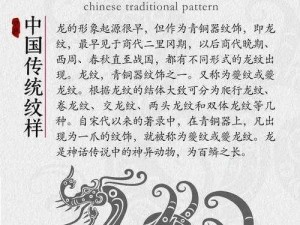 chinese traditional pattern
中国传统纹样
龙的形象起源很早，但作为青铜器纹饰，即龙
纹，最早见于商代二里冈期，以后商代晚期、西
周、春秋直至战国，都有不同形式的龙纹出
现。龙纹，青铜器纹饰之一。又称为夔纹或夔
龙纹。根据龙纹的结体大致可分为爬行龙纹、
卷龙纹、交龙纹、两头龙纹和双体龙纹等几
种。自宋代以来的著录中，在青铜器上，凡出
现为一爪的纹饰，就被称为夔纹或夔龙纹。龙
是神话传说中的神异动物，为百鳞之长。